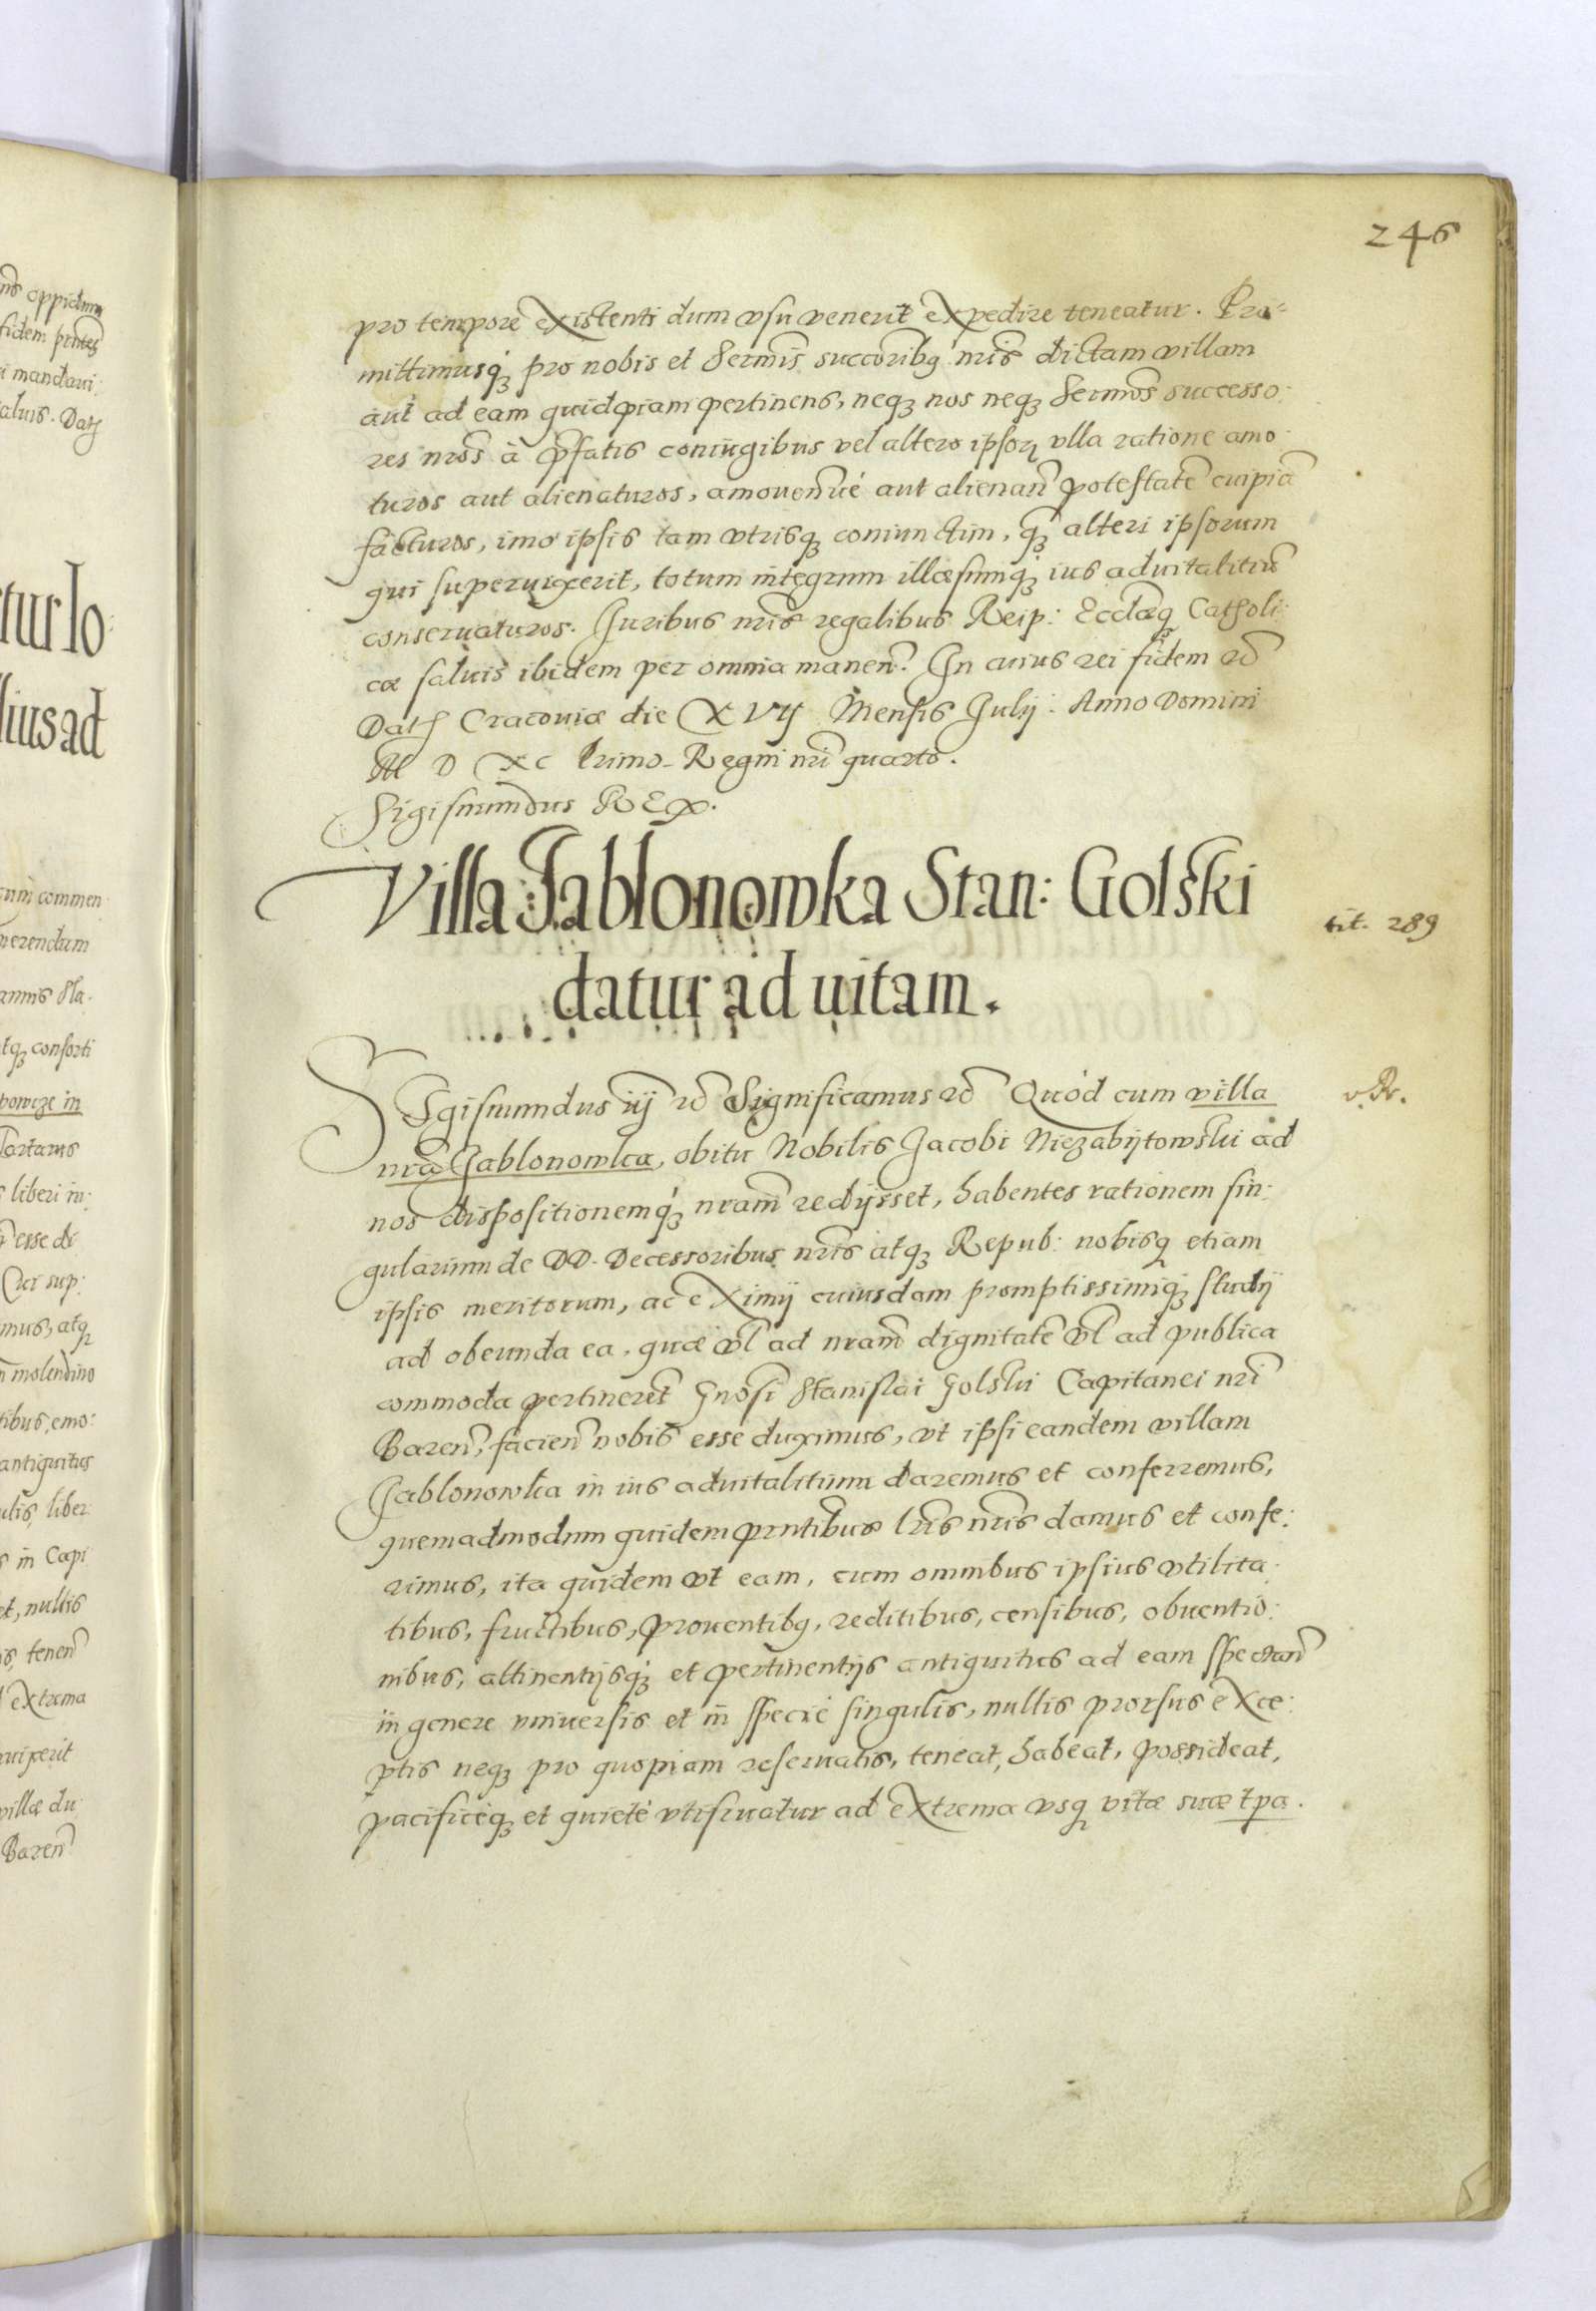 246
pro tempore existenti dum vsu venerit expedire teneatur. Pro-
mittimusq3 pro nobis et Sermis succoribq nris dictam villam
aut ad eam quidpiam pertinens, neq3 nos neq3 Sermos successo:
res nros à pfatis coniugibus vel altero ipsor vlla ratione amo:
turos aut alienaturos, amouen vé aut alienan potestate cuipia
facturos, imo ipsis tam vtrisq3 coniunctim, q3 alteri ipsorum
qui superuixerit, totum integrum illæsumq3 ius aduitalitiu
conseruaturos. Juribus nris regalibus Reip: Ecclæq3 Catholi:
cæ saluis ibidem per omnia manen. In cuius rei fidem etc
Dat Cracouiæ die XVij Mensis Julij. Anno Domini
M D XC Primo Regni nri quarto.
Sigismundus REX.
Villa Jablonowka Stan: Golski
datur ad uitam.
tit. 289
Sigismundus iij etc Significamus etc Quòd cum villa
nra Jablonowka, obitu Nobilis Jacobi Niezabijtowski ad
nos dispositionemq3 nram redijsset, habentes rationem sin:
gularium de DD. Decessoribus nris atq3 Repub: nobisq etiam
ipsis meritorum, ac eximij cuiusdam promptissimiq3 studij
ad obeunda ea, quæ vl ad nram dignitate vl ad publica
commoda pertineret Gnosi Stanislai Golski Capitanei nri
Baren, facien nobis esse duximus, vt ipsi eandem villam
Jablonowka in ius aduitalitium daremus et conferremus,
quemadmodum quidem pntibus lris nris damus et confe:
rimus, ita quidem vt eam, cum omnibus ipsius vtilita:
tibus, fructibus, prouentibq, reditibus, censibus, obuentio:
nibus, attinentijsq3 et pertinentijs antiquitus ad eam spectan
in genere vniuersis et in specie singulis, nullis prorsus exce:
ptis neq3 pro quopiam reseruatis, teneat, habeat, possideat,
pacificéq3 et quieté vtifruatur ad extrema vsq vitæ suæ tpa.